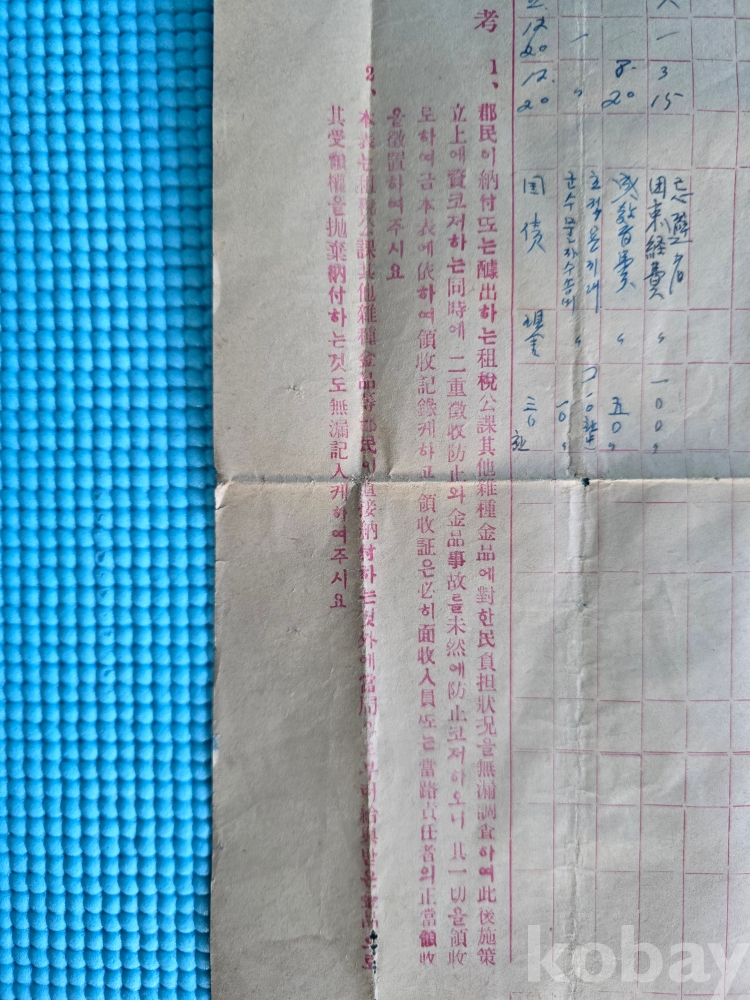 考
1、郡民이納付또는醵出하는租稅公課其他雜種金品에對한民負担狀況을無漏調査하여此後施策
立上에資코저하는同時에 二重徵收防止와金品事故를未然에防止코저하오니 其一切을領收
토하여금本表에依하여領收記錄케하고 領收証은必히面收入員또는當路責任者의正當領收
을徵置하여주시요
2、本表는租稅公課其他雜種金品等郡民이直接納付하는것外에當局으로부터給與받은金品으로
其受領權을抛棄納付하는것도無漏記入케하여주시요
12 3
20 15
12 8
20 20
国債 現金 三〇
군수물자수송비 〃 一〇〃
〃 五〇〃
団束経費 〃 一〇〇〃
kobay